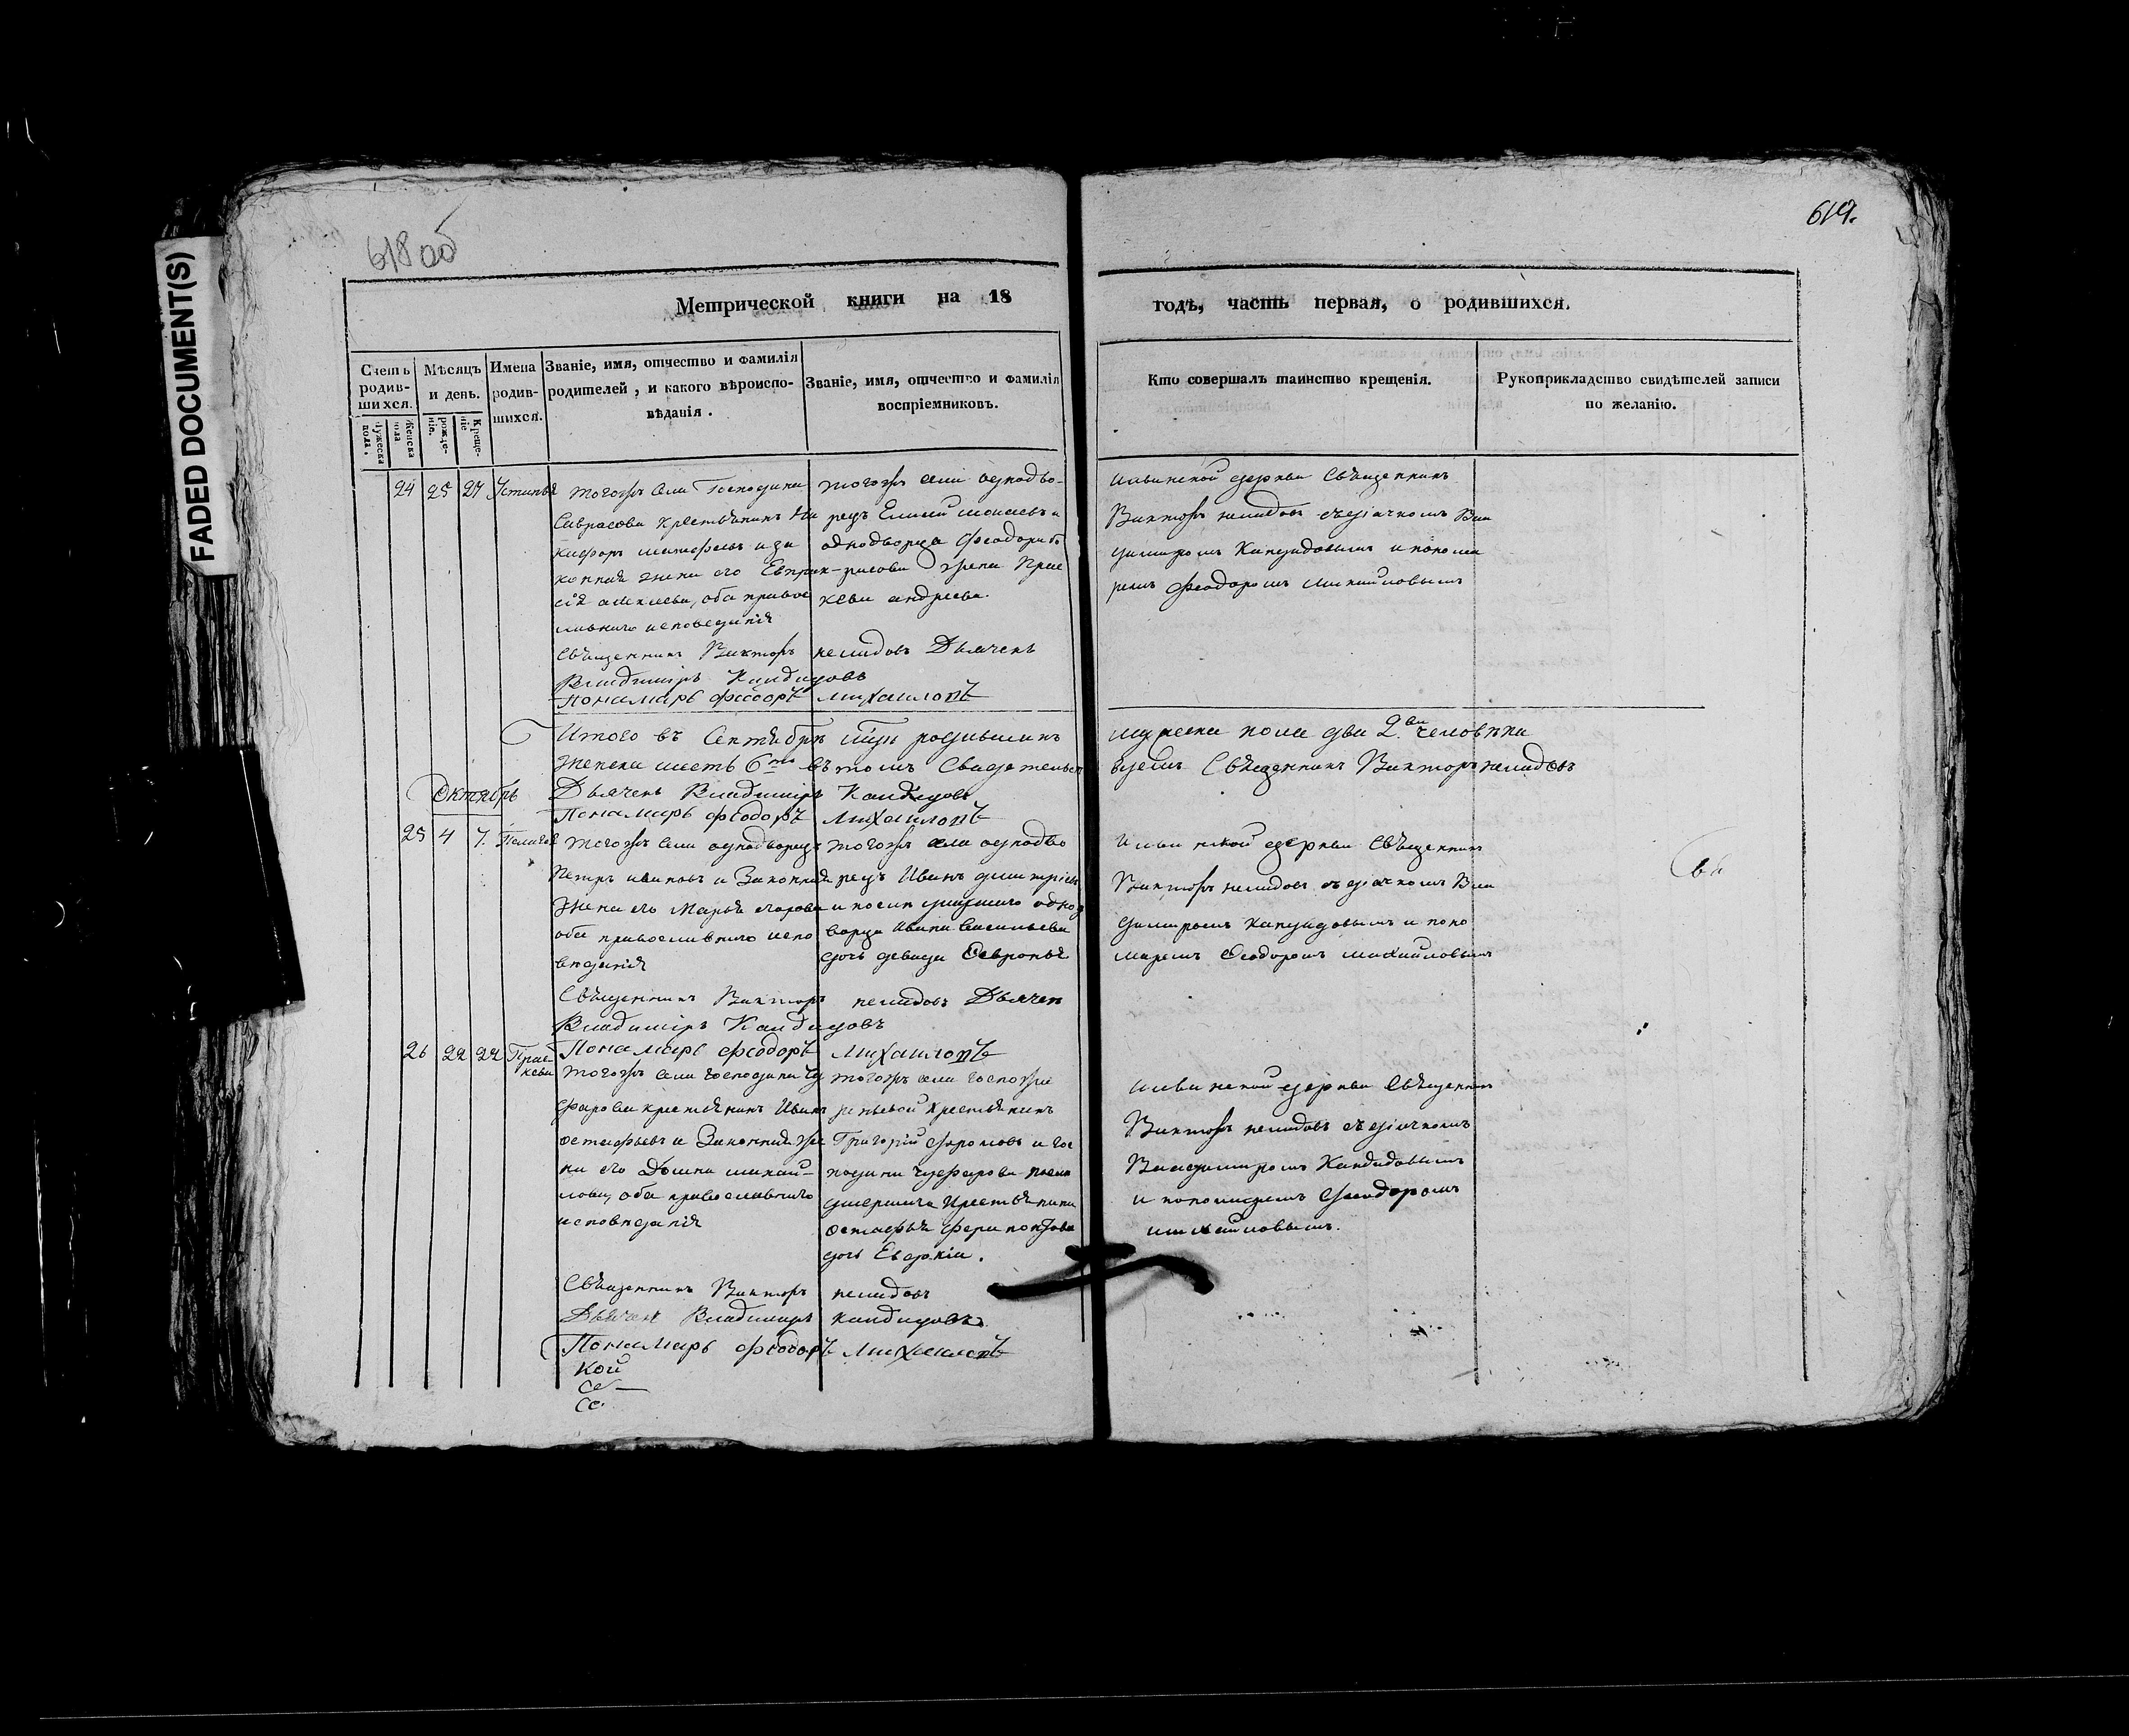 FADED DOCUMENT(S)
618 об
619.
Метрической книги на 18 годъ, часть первая, о родившихся.
Счетъ родив-шихся.
Мужеска пола.
Женска пола
Мѣсяцъ и день.
рожде-ніе.
Креще-ніе
Имена родив-шихся.
Званіе, имя, отчество и фамилія
родителей, и какого вѣроиспо-
вѣданія.
Званіе, имя, отчество и фамилія
воспріемниковъ.
Кто совершалъ таинство крещенія.
Рукоприкладство свидѣтелей записи
по желанію.
24 25 27 Устинья
тогожъ села Господина
Саврасова крестьянинъ Ни
кифоръ и за
конная жена его Евпрак-
сія оба право
славнаго исповеданія
тогожъ села однодво-
рецъ Елисей и
однодворца Феодора
жена Прас
кева андреева.
церкви Священникъ
Викторъ нелидовъ съ дiачкомъ Вла
димиромъ Кандидовымъ и понома
ремъ Феодоромъ михайловымъ
Священникъ Викторъ нелидовъ Дьячекъ
Владимiръ Кандидовъ
Понамарь Феодоръ Михаиловъ
Итого въ Сентябрѣ родившихъ мужеска пола два 2 человѣка
женска шесть 6 въ томъ Священникъ Викторъ нелидовъ
Дьячекъ Владимiръ Кандидовъ
Понамарь Феодоръ Михаиловъ
Октябрь
25 4 7. Пелагея
тогожъ села однодворецъ
Петръ ивановъ и Законная
жена его Марья егорова
оба православнаго испо
веданія
тогожъ села однодво
рецъ Иванъ дмитріевъ
и умершаго однод
ворца ивана васильева
дочь девица Февронья
церкви Священникъ
Викторъ нелидовъ съ дiачкомъ Вла
димиромъ кандидовымъ и поно
маремъ Феодоромъ михайловымъ
Священникъ Викторъ нелидовъ Дьячек
Владимiръ Кандидовъ
Понамарь Феодоръ Михаиловъ
26 22 24 Прас-
кева
тогожъ села господина Чу
фарова крестьянинъ Иванъ
остафьевъ и Законная же
на его Домна михай-
лова, оба православнаго
исповѣданія
тогожъ села госпожи
крестьянинъ
Григорій и гос
подина чуфарова
умершаго крестьянина
остафья
дочь Евдокіа.
церкви Священникъ
Викторъ нелидовъ съ дiачкомъ
Владимиромъ Кандидовымъ
и пономаремъ Феодоромъ
михайловымъ.
Священникъ Викторъ нелидовъ
Дьячек Владимиръ кандидовъ
Понамарь Феодоръ Михаиловъ